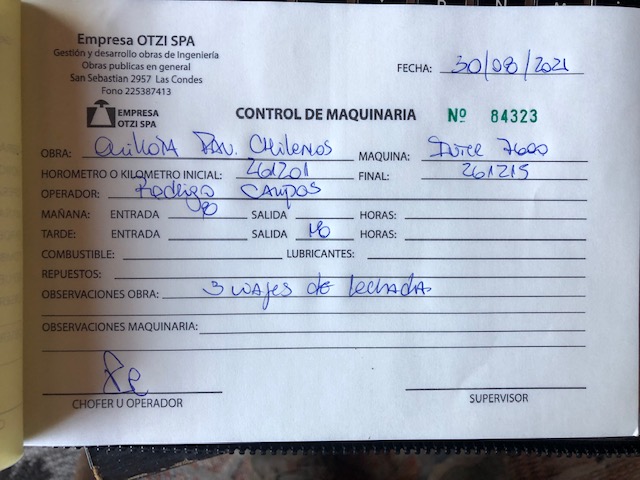 Empresa OTZI SPA
Gestión y desarrollo obras de Ingeniería
Obras publicas en general
San Sebastian 2957 Las Condes
Fono 225387413
FECHA: 30/08/2021
EMPRESA
OTZI SPA
CONTROL DE MAQUINARIA Nº 84323
OBRA: Quillota Chilenos MAQUINA: 7600
HOROMETRO O KILOMETRO INICIAL: 261201 FINAL: 261215
OPERADOR: Rodrigo Campos
MAÑANA: ENTRADA 8 SALIDA HORAS:
TARDE: ENTRADA SALIDA 18 HORAS:
COMBUSTIBLE: LUBRICANTES:
REPUESTOS:
OBSERVACIONES OBRA: 3 viajes de lechada
OBSERVACIONES MAQUINARIA:
CHOFER U OPERADOR SUPERVISOR